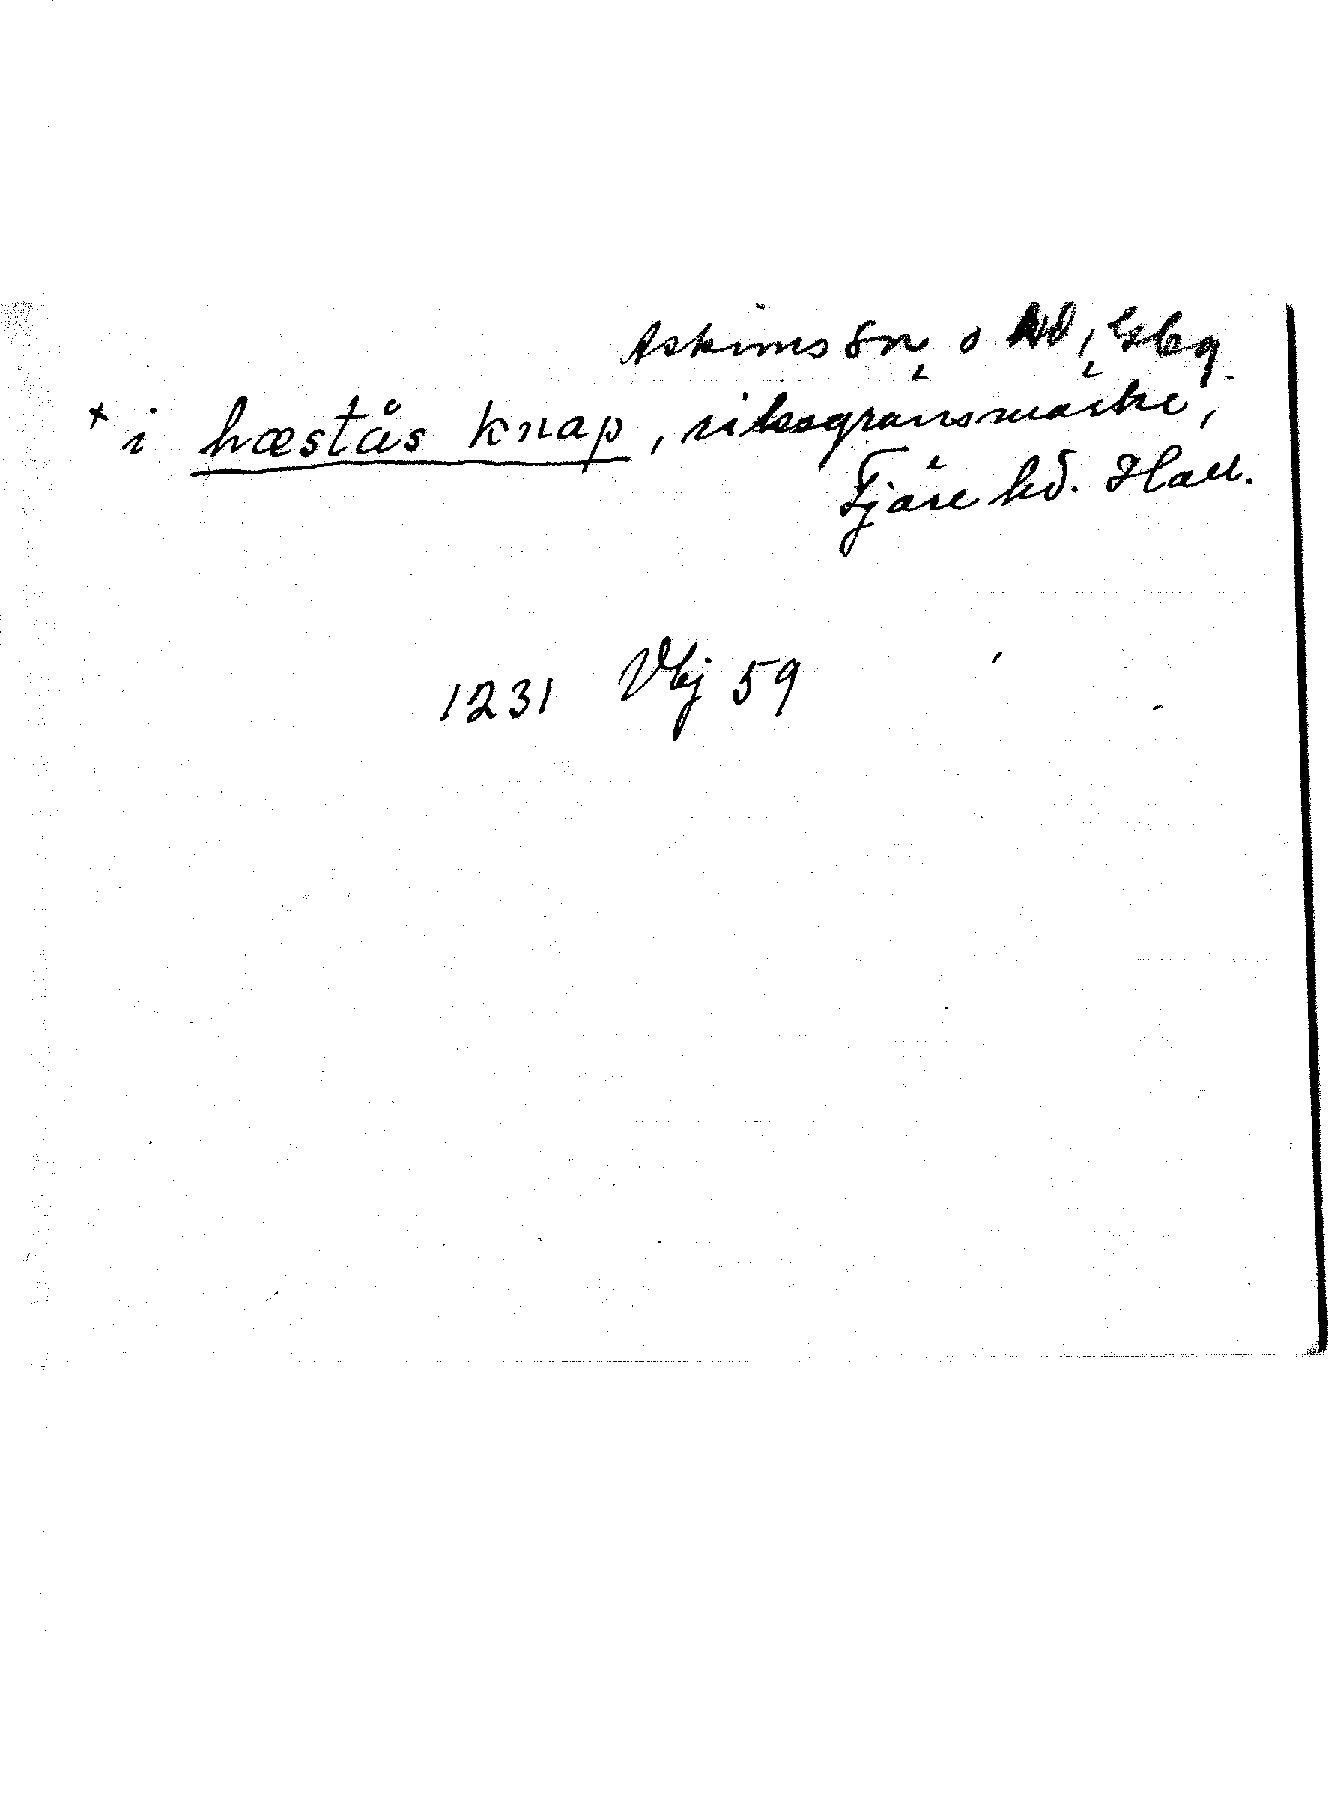 Askims sn o hd, Gbg
+ i hæstås knap, riksgränsmärke,
Fjäre hd. Hall.
1231 Vbj 59